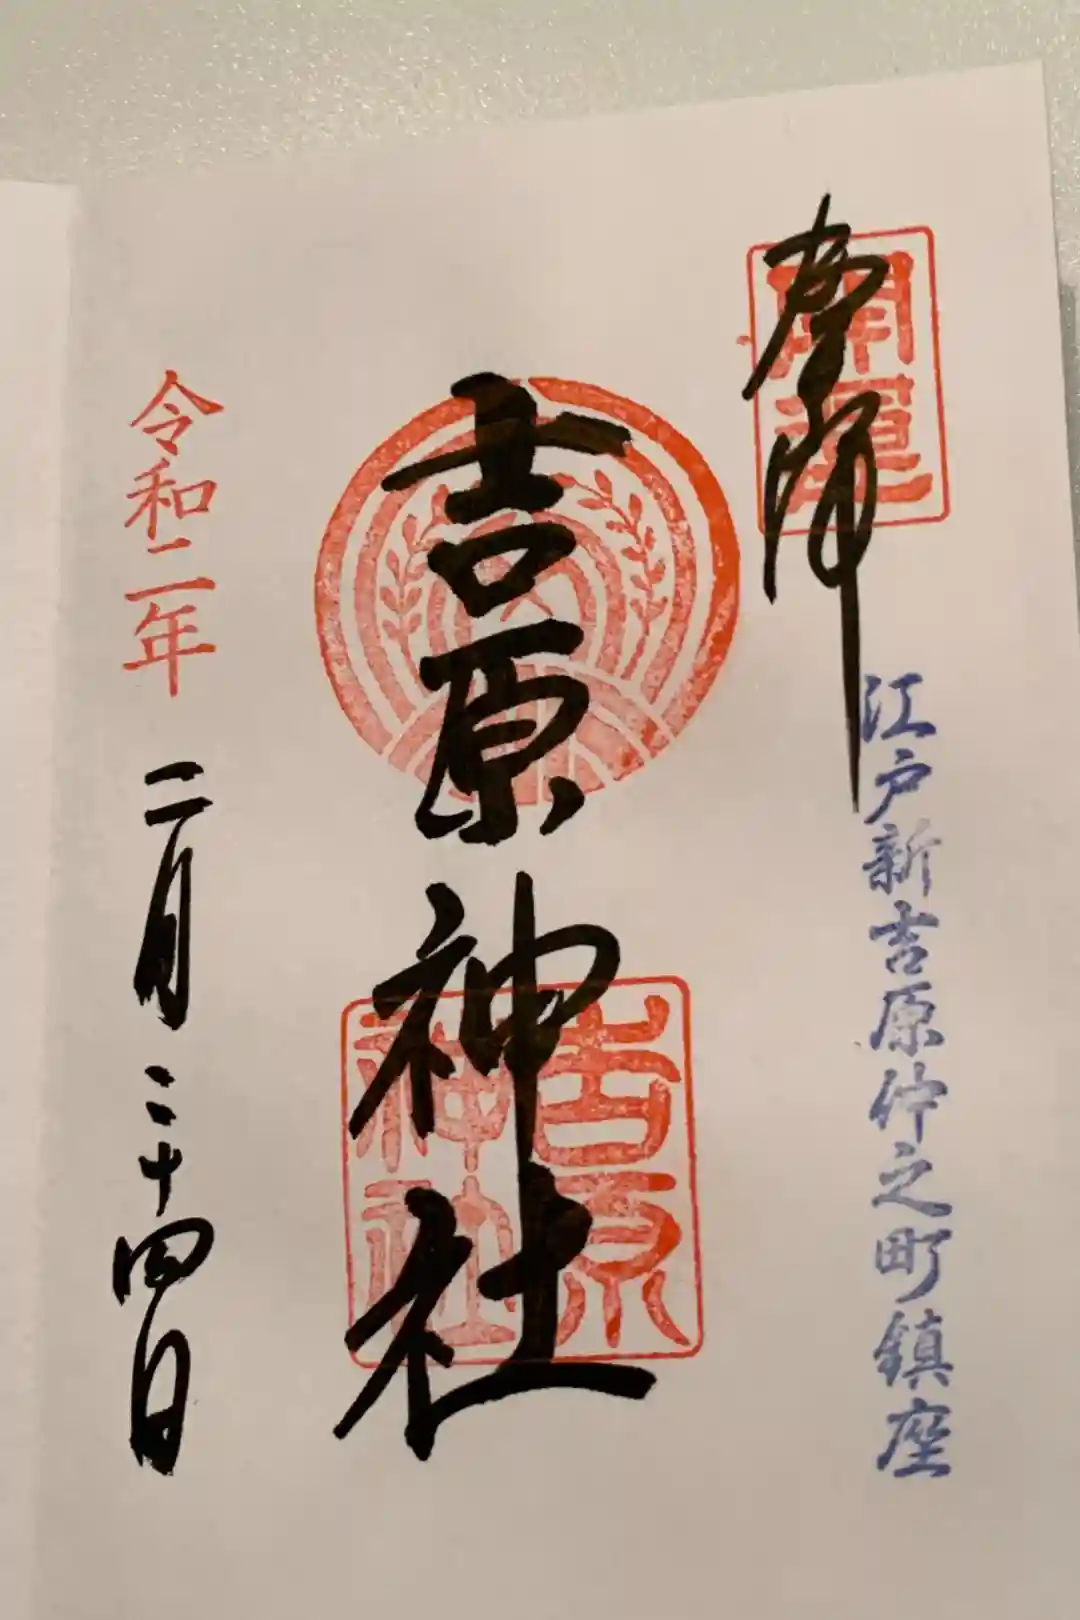 奉拝
開運
江戸新吉原仲之町鎮座
吉原神社
吉原
神社
令和二年
二月二十四日